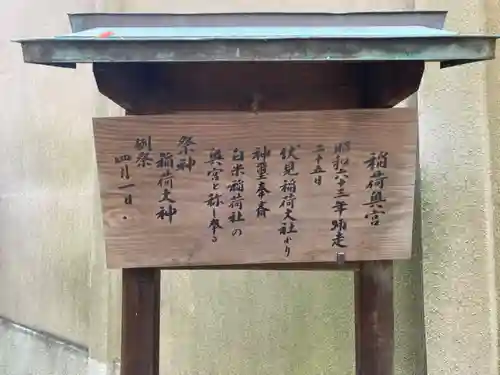 稲荷奥宮
昭和六十三年師走
二十五日
伏見稲荷大社より
神璽奉斎
白米稲荷社の
奥宮と称し奉る
祭神
稲荷大神
例祭
四月一日